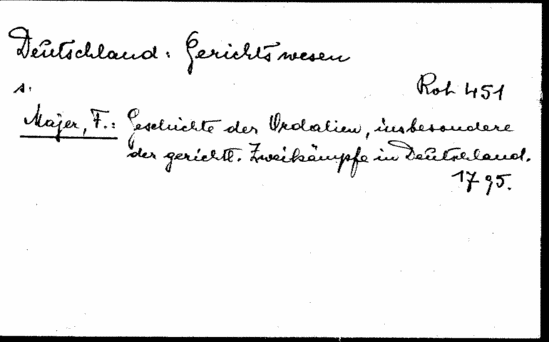 Deutschland: Gerichtswesen
s.
Roh 451
Majer, F.: Geschichte der Ordalien, insbesondere
der gerichtl. Zweikämpfe in Deutschland.
1795.